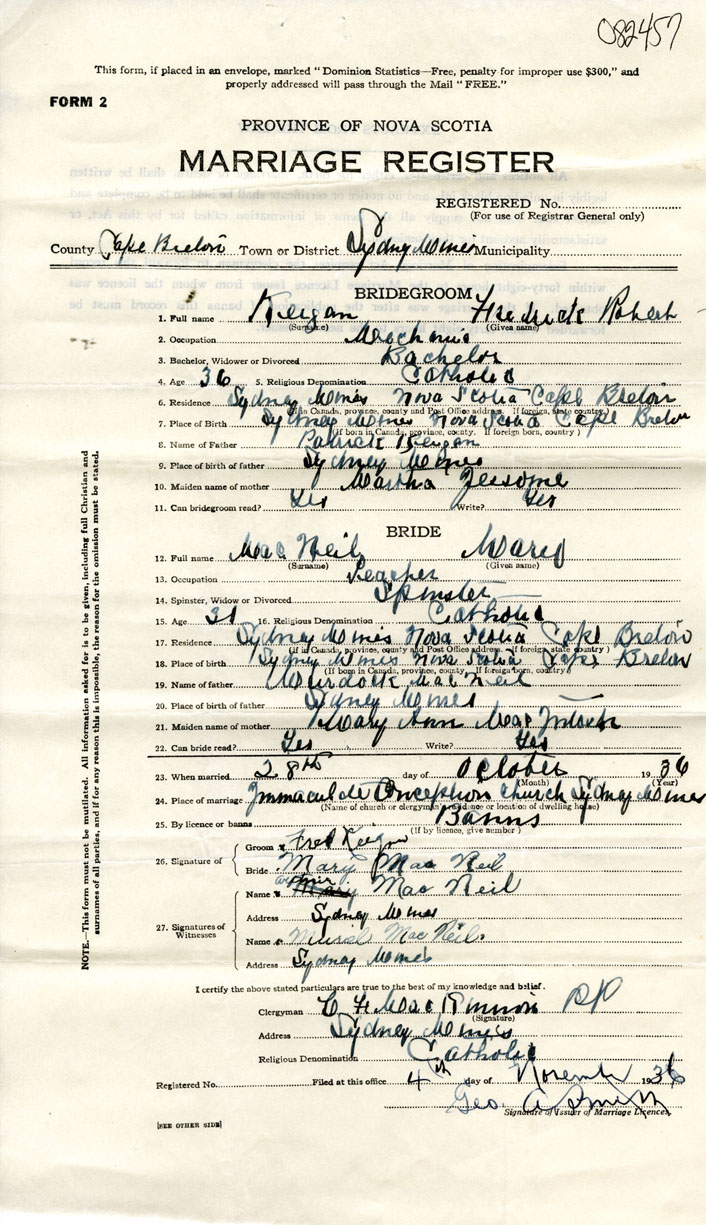 082457
This form, if placed in an envelope, marked "Dominion Statistics—Free, penalty for improper use $300," and
properly addressed will pass through the Mail "FREE."
FORM 2
PROVINCE OF NOVA SCOTIA
MARRIAGE REGISTER
REGISTERED No.
(For use of Registrar General only)
County Cape Breton Town or District Sydney Mines Municipality
BRIDEGROOM
1. Full name Keigan Fredrick Robert
(Surname) (Given name)
2. Occupation Mechanic
3. Bachelor, Widower or Divorced Bachelor
4. Age 36 5. Religious Denomination Catholic
6. Residence Sydney Mines Nova Scotia Cape Breton
(If in Canada, province, county and Post Office address. If foreign, state country)
7. Place of Birth Sydney Mines Nova Scotia Cape Breton
(If born in Canada, province, county. If foreign born, country)
8. Name of Father Patrick Keigan
9. Place of birth of father Sydney Mines
10. Maiden name of mother Martha
11. Can bridegroom read? Yes Write? Yes
BRIDE
12. Full name Mac Neil Mary
(Surname) (Given name)
13. Occupation Teacher
14. Spinster, Widow or Divorced Spinster
15. Age 31 16. Religious Denomination Catholic
17. Residence Sydney Mines Nova Scotia Cape Breton
(If in Canada, province, county and Post Office address. If foreign, state country)
18. Place of birth Sydney Mines Nova Scotia Cape Breton
(If born in Canada, province, county. If foreign born, country)
19. Name of father Murdock Mac Neil
20. Place of birth of father Sydney Mines
21. Maiden name of mother Mary Ann Mac Intosh
22. Can bride read? Yes Write? Yes
23. When married 28th day of October 1936
(Month) (Year)
24. Place of marriage Immaculate Conception Church Sydney Mines
(Name of church or clergyman's residence or location of dwelling house)
25. By licence or banns Banns
(If by licence, give number)
26. Signature of Groom Fred Keigan
Bride Mary Mac Neil
27. Signatures of Witnesses
Name Mac Neil
Address Sydney Mines
Name Muriel Mac Neil
Address Sydney Mines
I certify the above stated particulars are true to the best of my knowledge and belief.
Clergyman C. F. Mac Kinnon P.P.
(Signature)
Address Sydney Mines
Religious Denomination Catholic
Registered No. Filed at this office 4th day of November 1936
Geo. A Smith
Signature of Issuer of Marriage Licences.
[SEE OTHER SIDE]
NOTE.—This form must not be mutilated. All information asked for is to be given, including full Christian and
surnames of all parties, and if for any reason this is impossible, the reason for the omission must be stated.